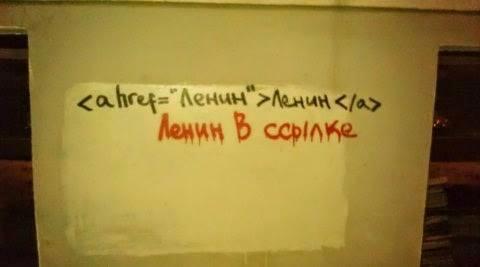 <a href="Ленин">Ленин</a>
Ленин в ссылке